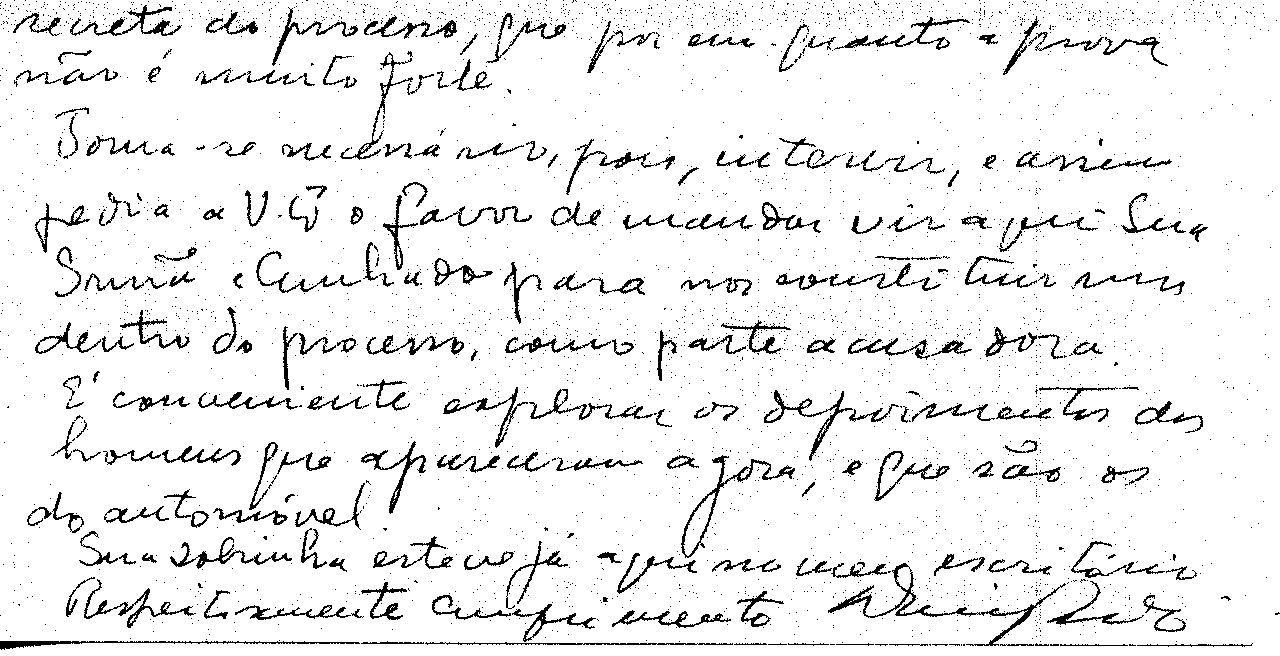 secreta do processo, que por em quanto a prova
não é muito forte.
Torna-se necessário, pois, intervir, e assim
pedia a V. Ex.ª o favor de mandar vir aqui Sua
Irmã e Cunhado para nos constituir
dentro do processo, como parte acusadora.
É conveniente explorar os depoimentos dos
homens que apareceram agora, e que são os
do automóvel.
Sua sobrinha esteve já aqui no meu escritório
Respeitosamente cumprimento